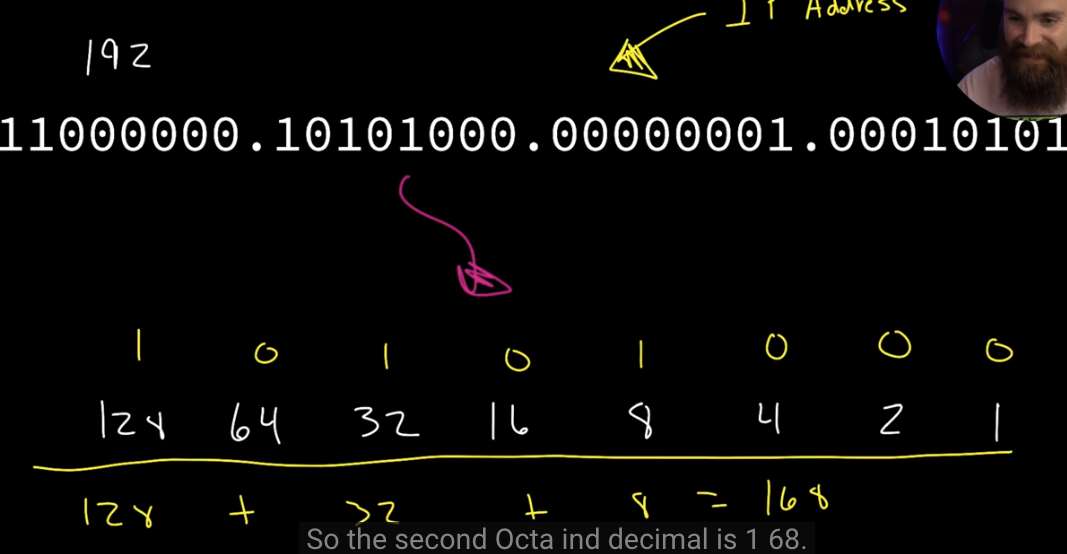 IP Address
192
11000000.10101000.00000001.00010101
1 0 1 0 1 0 0 0
128 64 32 16 8 4 2 1
128 + 32 + 8 = 168
So the second Octa ind decimal is 1 68.